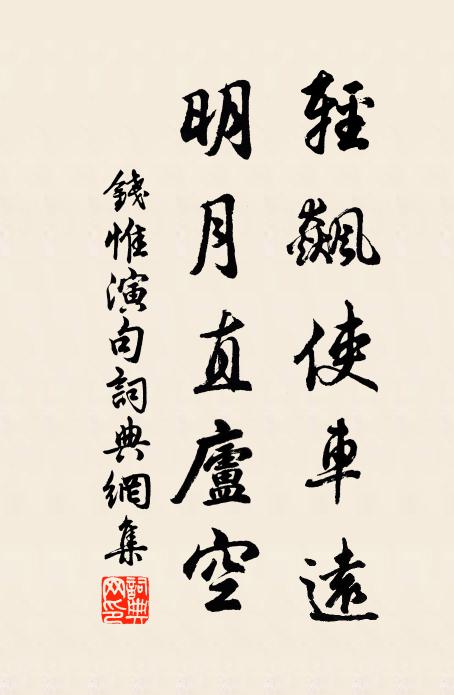 輕飆使車遠
明月直廬空
錢惟演句詞典網集
詞典网印